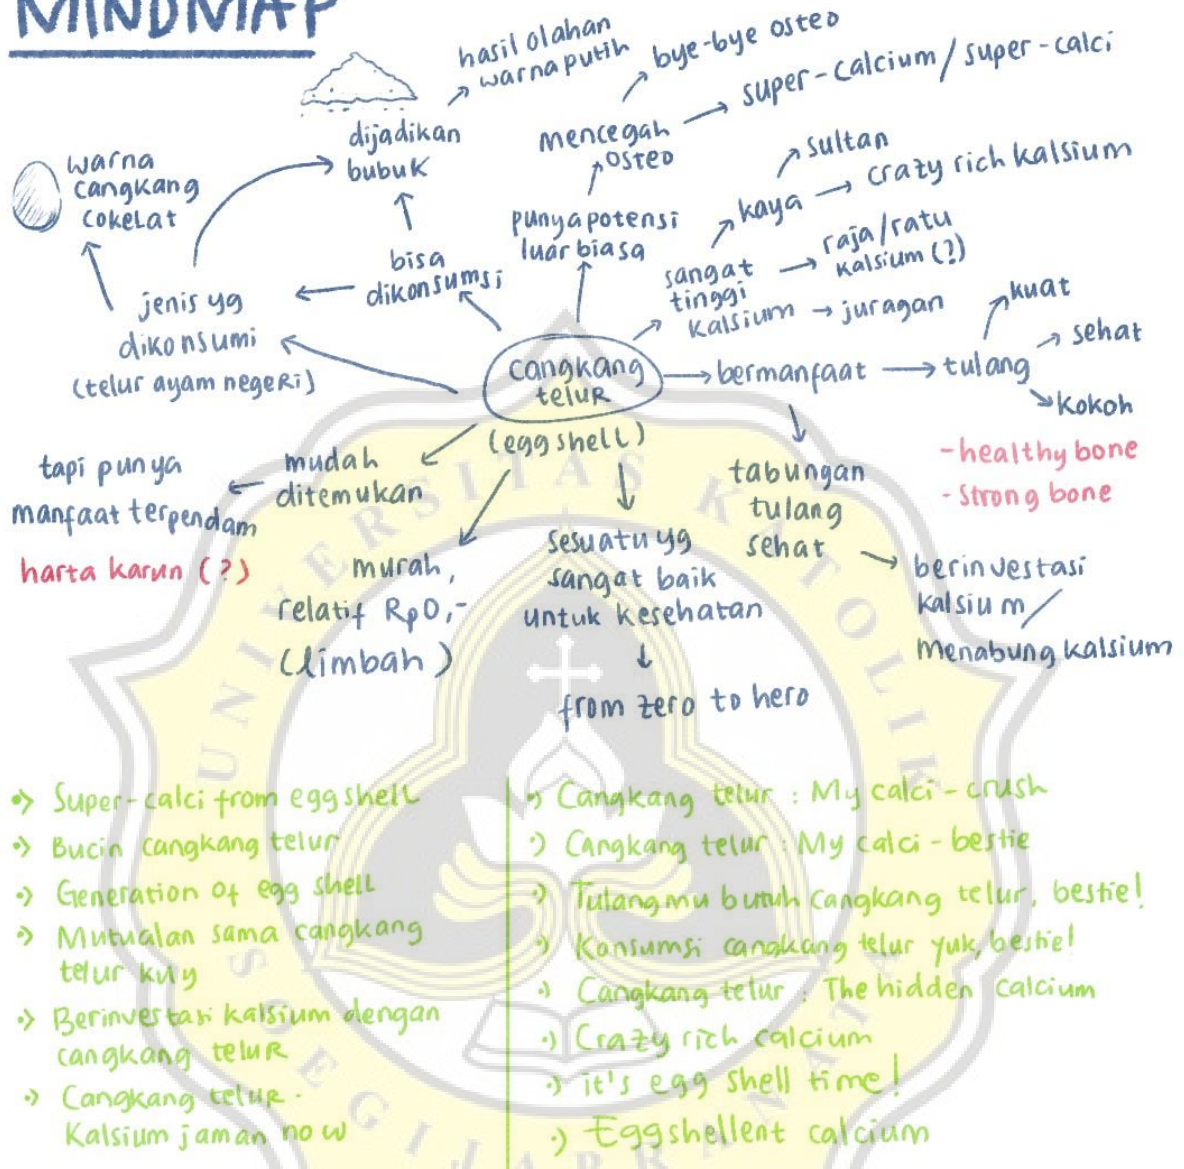 MINDMAP
hasil olahan
warna putih
bye-bye osteo
super-calcium / super-calci
dijadikan
bubuk
mencegah
osteo
sultan
crazy rich kalsium
kaya
warna
cangkang
cokelat
punya potensi
luar biasa
raja/ratu
kalsium (?)
sangat
tinggi
kalsium
juragan
bisa
dikonsumsi
jenis yg
dikonsumi
(telur ayam negeri)
cangkang
telur
(egg shell)
bermanfaat
tulang
kuat
sehat
kokoh
- healthy bone
- strong bone
mudah
ditemukan
tapi punya
manfaat terpendam
harta karun (?)
murah,
relatif Rp0,-
(limbah)
sesuatu yg
sangat baik
untuk kesehatan
from zero to hero
tabungan
tulang
sehat
berinvestasi
kalsium/
menabung kalsium
Super-calci from egg shell
Bucin cangkang telur
Generation of egg shell
Mutualan sama cangkang
telur kuy
Berinvestasi kalsium dengan
cangkang telur
Cangkang telur.
Kalsium jaman now
Cangkang telur : My calci-crush
Cangkang telur : My calci-bestie
Tulangmu butuh cangkang telur, bestie!
Konsumsi cangkang telur yuk, bestie!
Cangkang telur : The hidden calcium
Crazy rich calcium
it's egg shell time!
Eggshellent calcium
UNIVERSITAS KATOLIK
SOEGIJAPRANATA